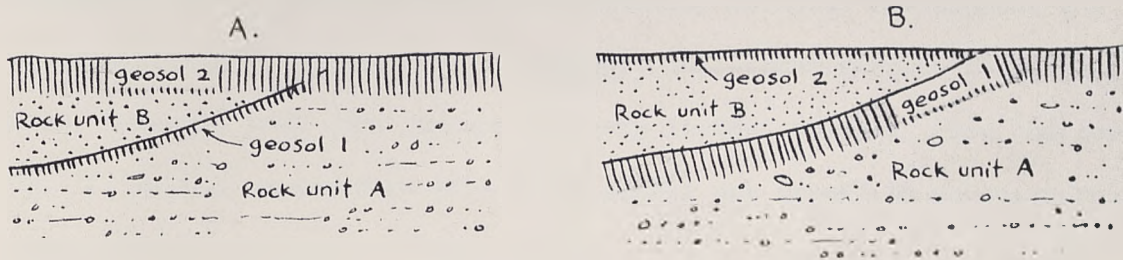 A.
geosol 2
Rock unit B
geosol 1
Rock unit A
B.
geosol 2
Rock unit B
geosol 1
Rock unit A